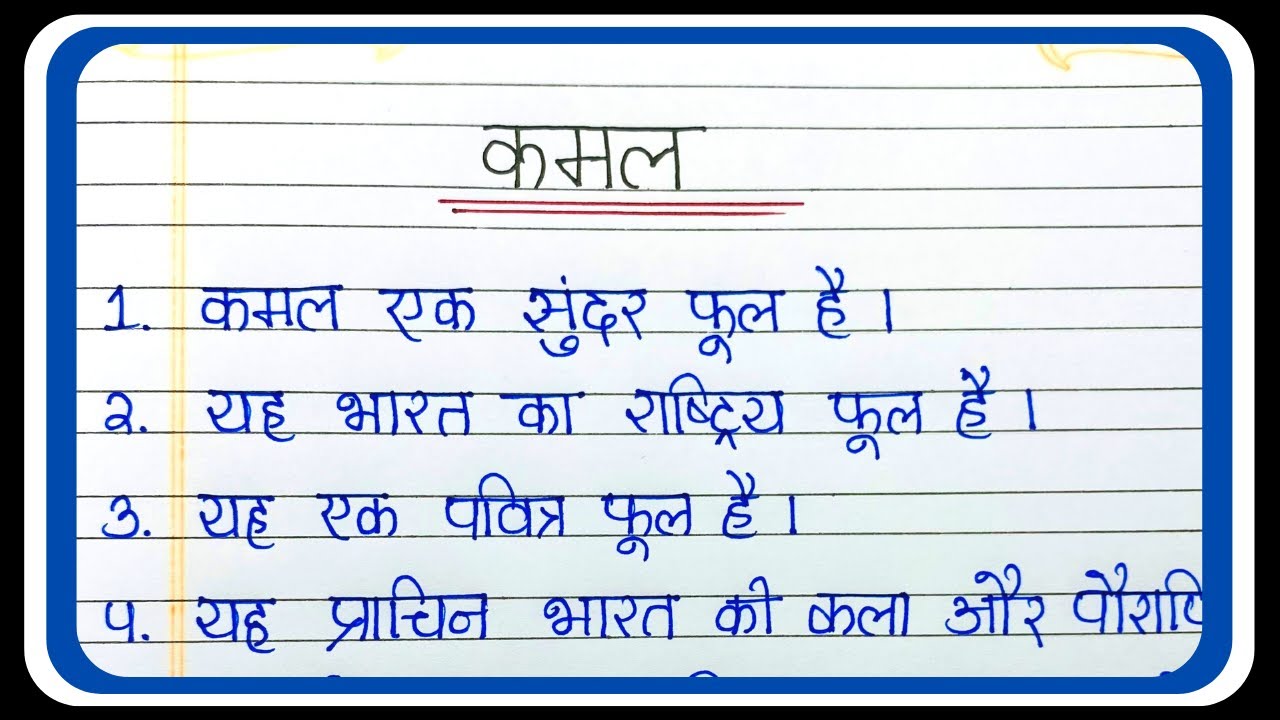 कमल
1. कमल एक सुंदर फूल है।
२. यह भारत का राष्ट्रिय फूल है।
३. यह एक पवित्र फूल है।
४. यह प्राचिन भारत की कला और